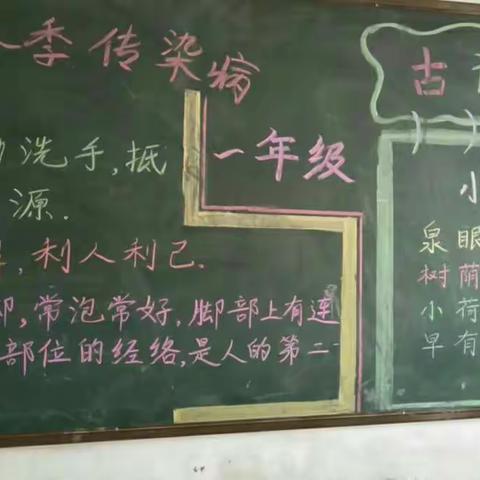 季传染病
洗手,抵
源.
,利人利己.
,常泡常好,脚部上有连
部位的经络,是人的第二
一年级
古
小
泉眼
树荫
小荷
早有